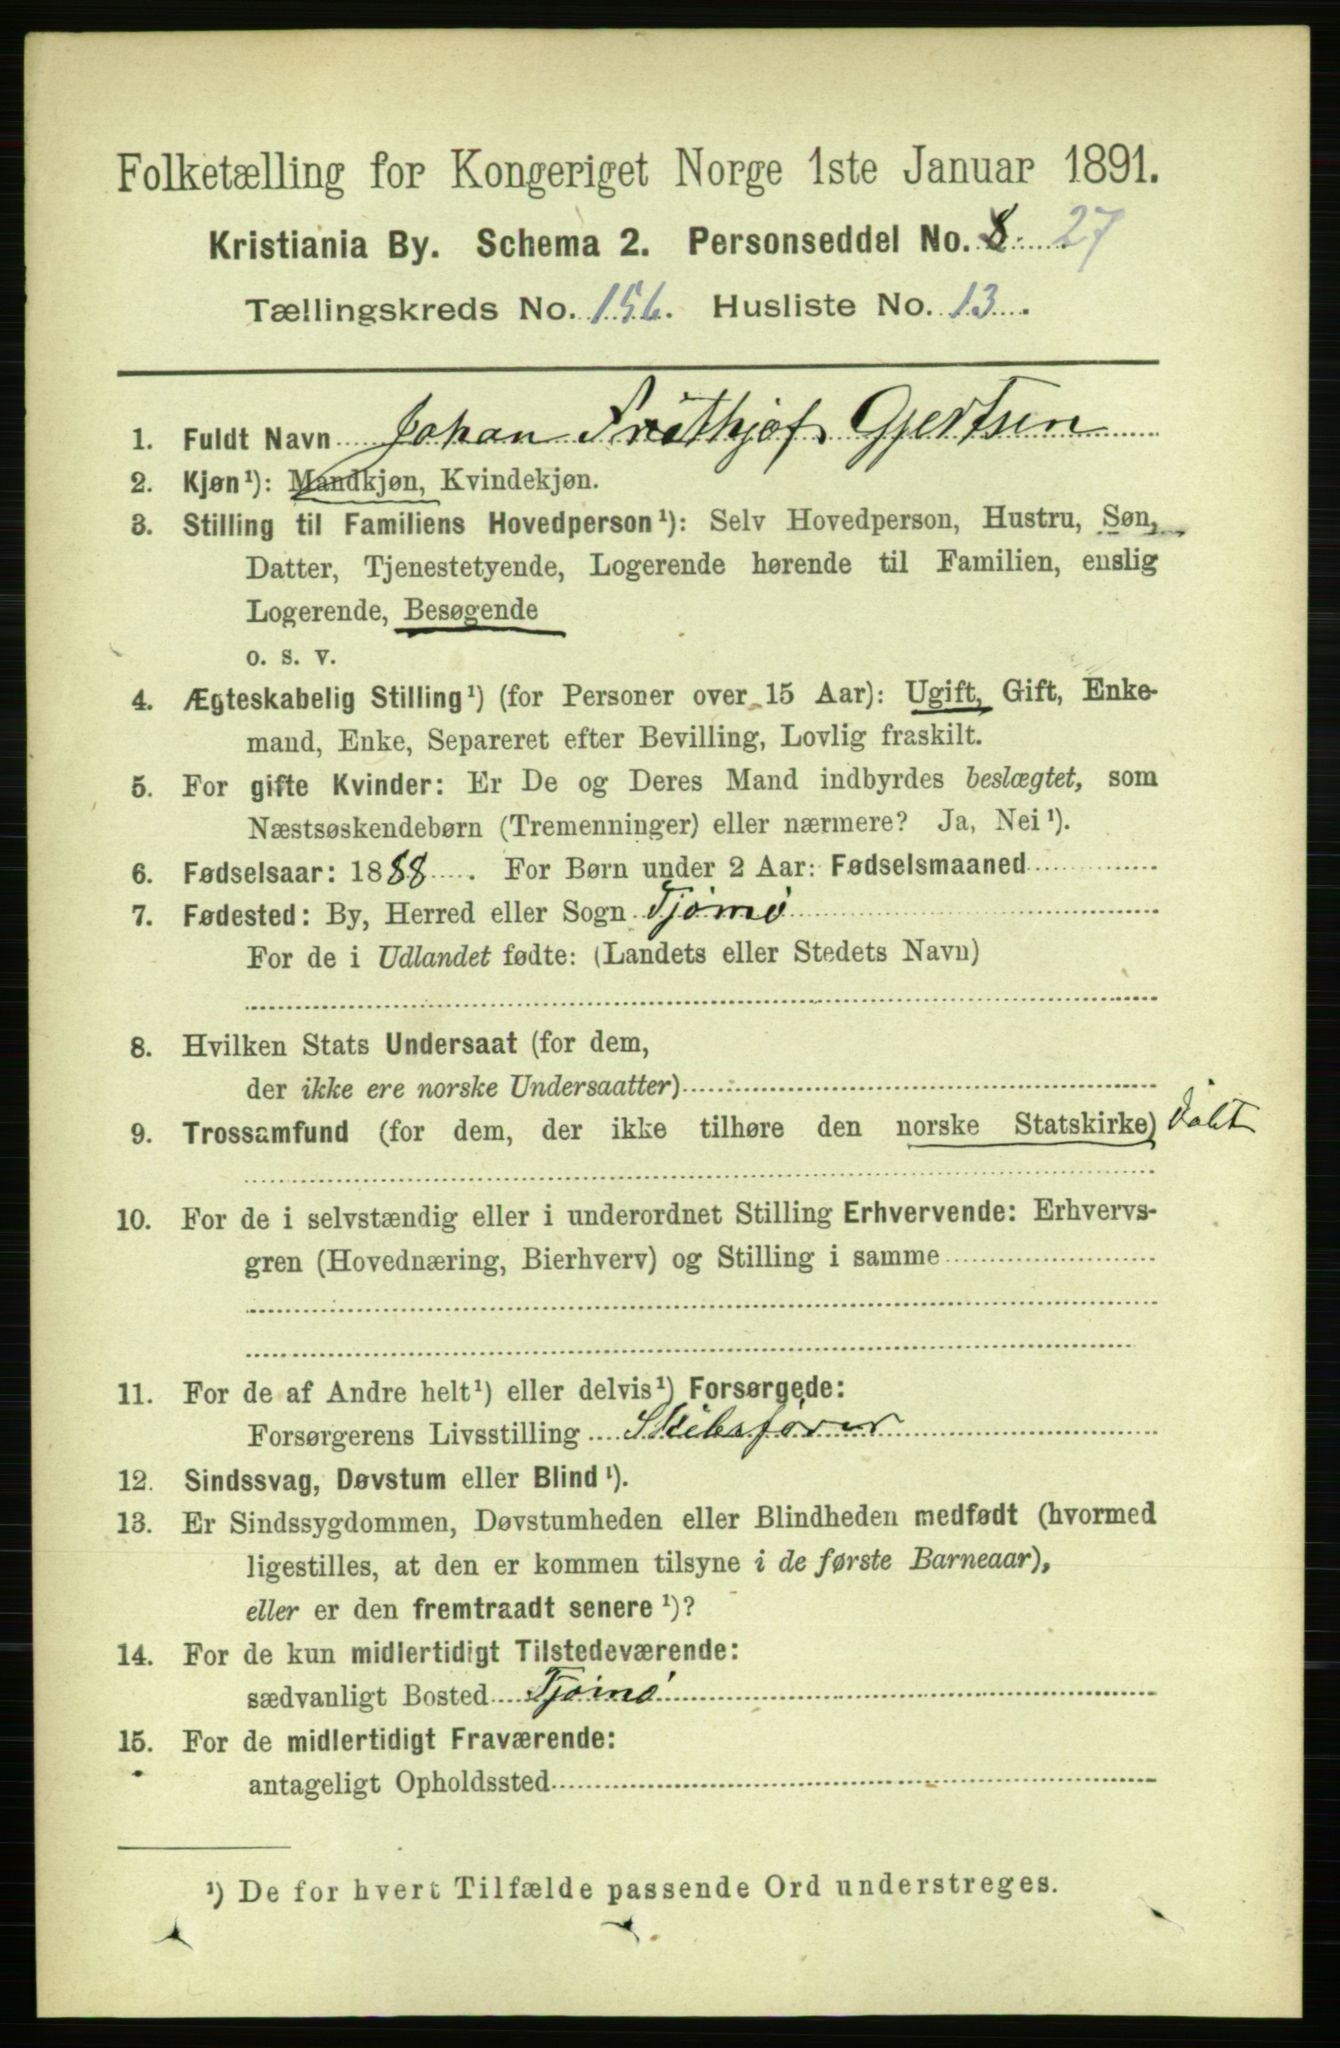 Folketælling for Kongeriget Norge 1ste Januar 1891.
Kristiania By. Schema 2. Personseddel No. 8 27
Tællingskreds No. 156. Husliste No. 13.
1. Fuldt Navn Johan Frithjof Gjertsen
2. Kjøn¹): Mandkjøn, Kvindekjøn.
3. Stilling til Familiens Hovedperson¹): Selv Hovedperson, Hustru, Søn,
Datter, Tjenestetyende, Logerende hørende til Familien, enslig
Logerende, Besøgende
o. s. v.
4. Ægteskabelig Stilling¹) (for Personer over 15 Aar): Ugift, Gift, Enke-
mand, Enke, Separeret efter Bevilling, Lovlig fraskilt.
5. For gifte Kvinder: Er De og Deres Mand indbyrdes beslægtet, som
Næstsøskendebørn (Tremenninger) eller nærmere? Ja, Nei¹).
6. Fødselsaar: 1888. For Børn under 2 Aar: Fødselsmaaned
7. Fødested: By, Herred eller Sogn Tjømø
For de i Udlandet fødte: (Landets eller Stedets Navn)
8. Hvilken Stats Undersaat (for dem,
der ikke ere norske Undersaatter)
9. Trossamfund (for dem, der ikke tilhøre den norske Statskirke) døbt
10. For de i selvstændig eller i underordnet Stilling Erhvervende: Erhvervs-
gren (Hovednæring, Bierhverv) og Stilling i samme
11. For de af Andre helt¹) eller delvis¹) Forsørgede:
Forsørgerens Livsstilling Skibsfører
12. Sindssvag, Døvstum eller Blind¹).
13. Er Sindssygdommen, Døvstumheden eller Blindheden medfødt (hvormed
ligestilles, at den er kommen tilsyne i de første Barneaar),
eller er den fremtraadt senere¹)?
14. For de kun midlertidigt Tilstedeværende:
sædvanligt Bosted Tjømø
15. For de midlertidigt Fraværende:
antageligt Opholdssted
¹) De for hvert Tilfælde passende Ord understreges.